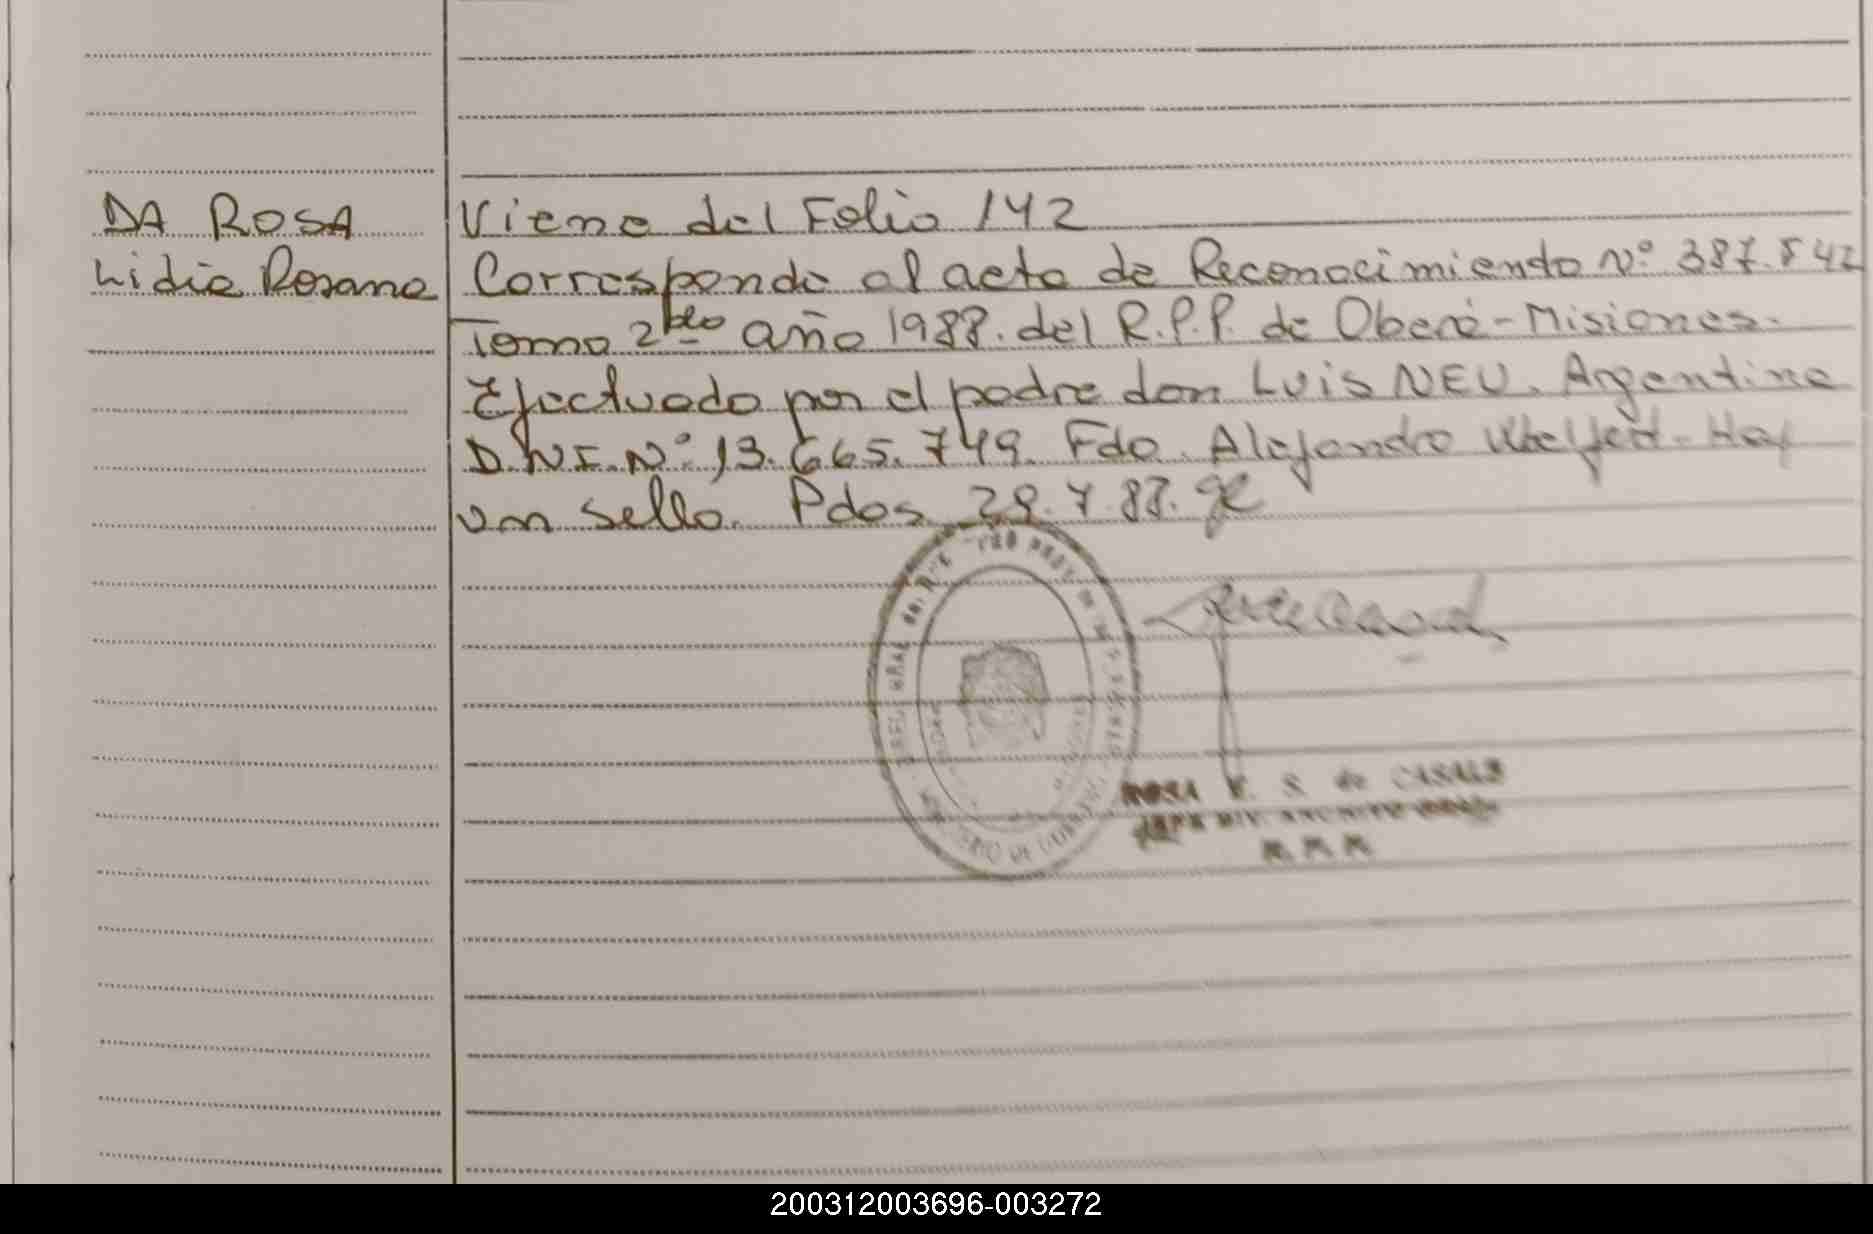 DA ROSA
Lidia Rosana
Viene del Folio 142
Corresponde al acta de Reconocimiento Nº 387.842
Tomo 2do año 1988. del R.P.P. de Oberá-Misiones.
Efectuado por el padre don Luis NEU. Argentino
D.N.I.Nº 13.665.749. Fdo. Alejandro Hay
un sello. Pdas. 29.7.88.
GRAL DEL
MINISTERIO DE GOBIERNO
ROSA S. de CASALS
JEFE DIV. ARCHIVO GRAL
200312003696-003272